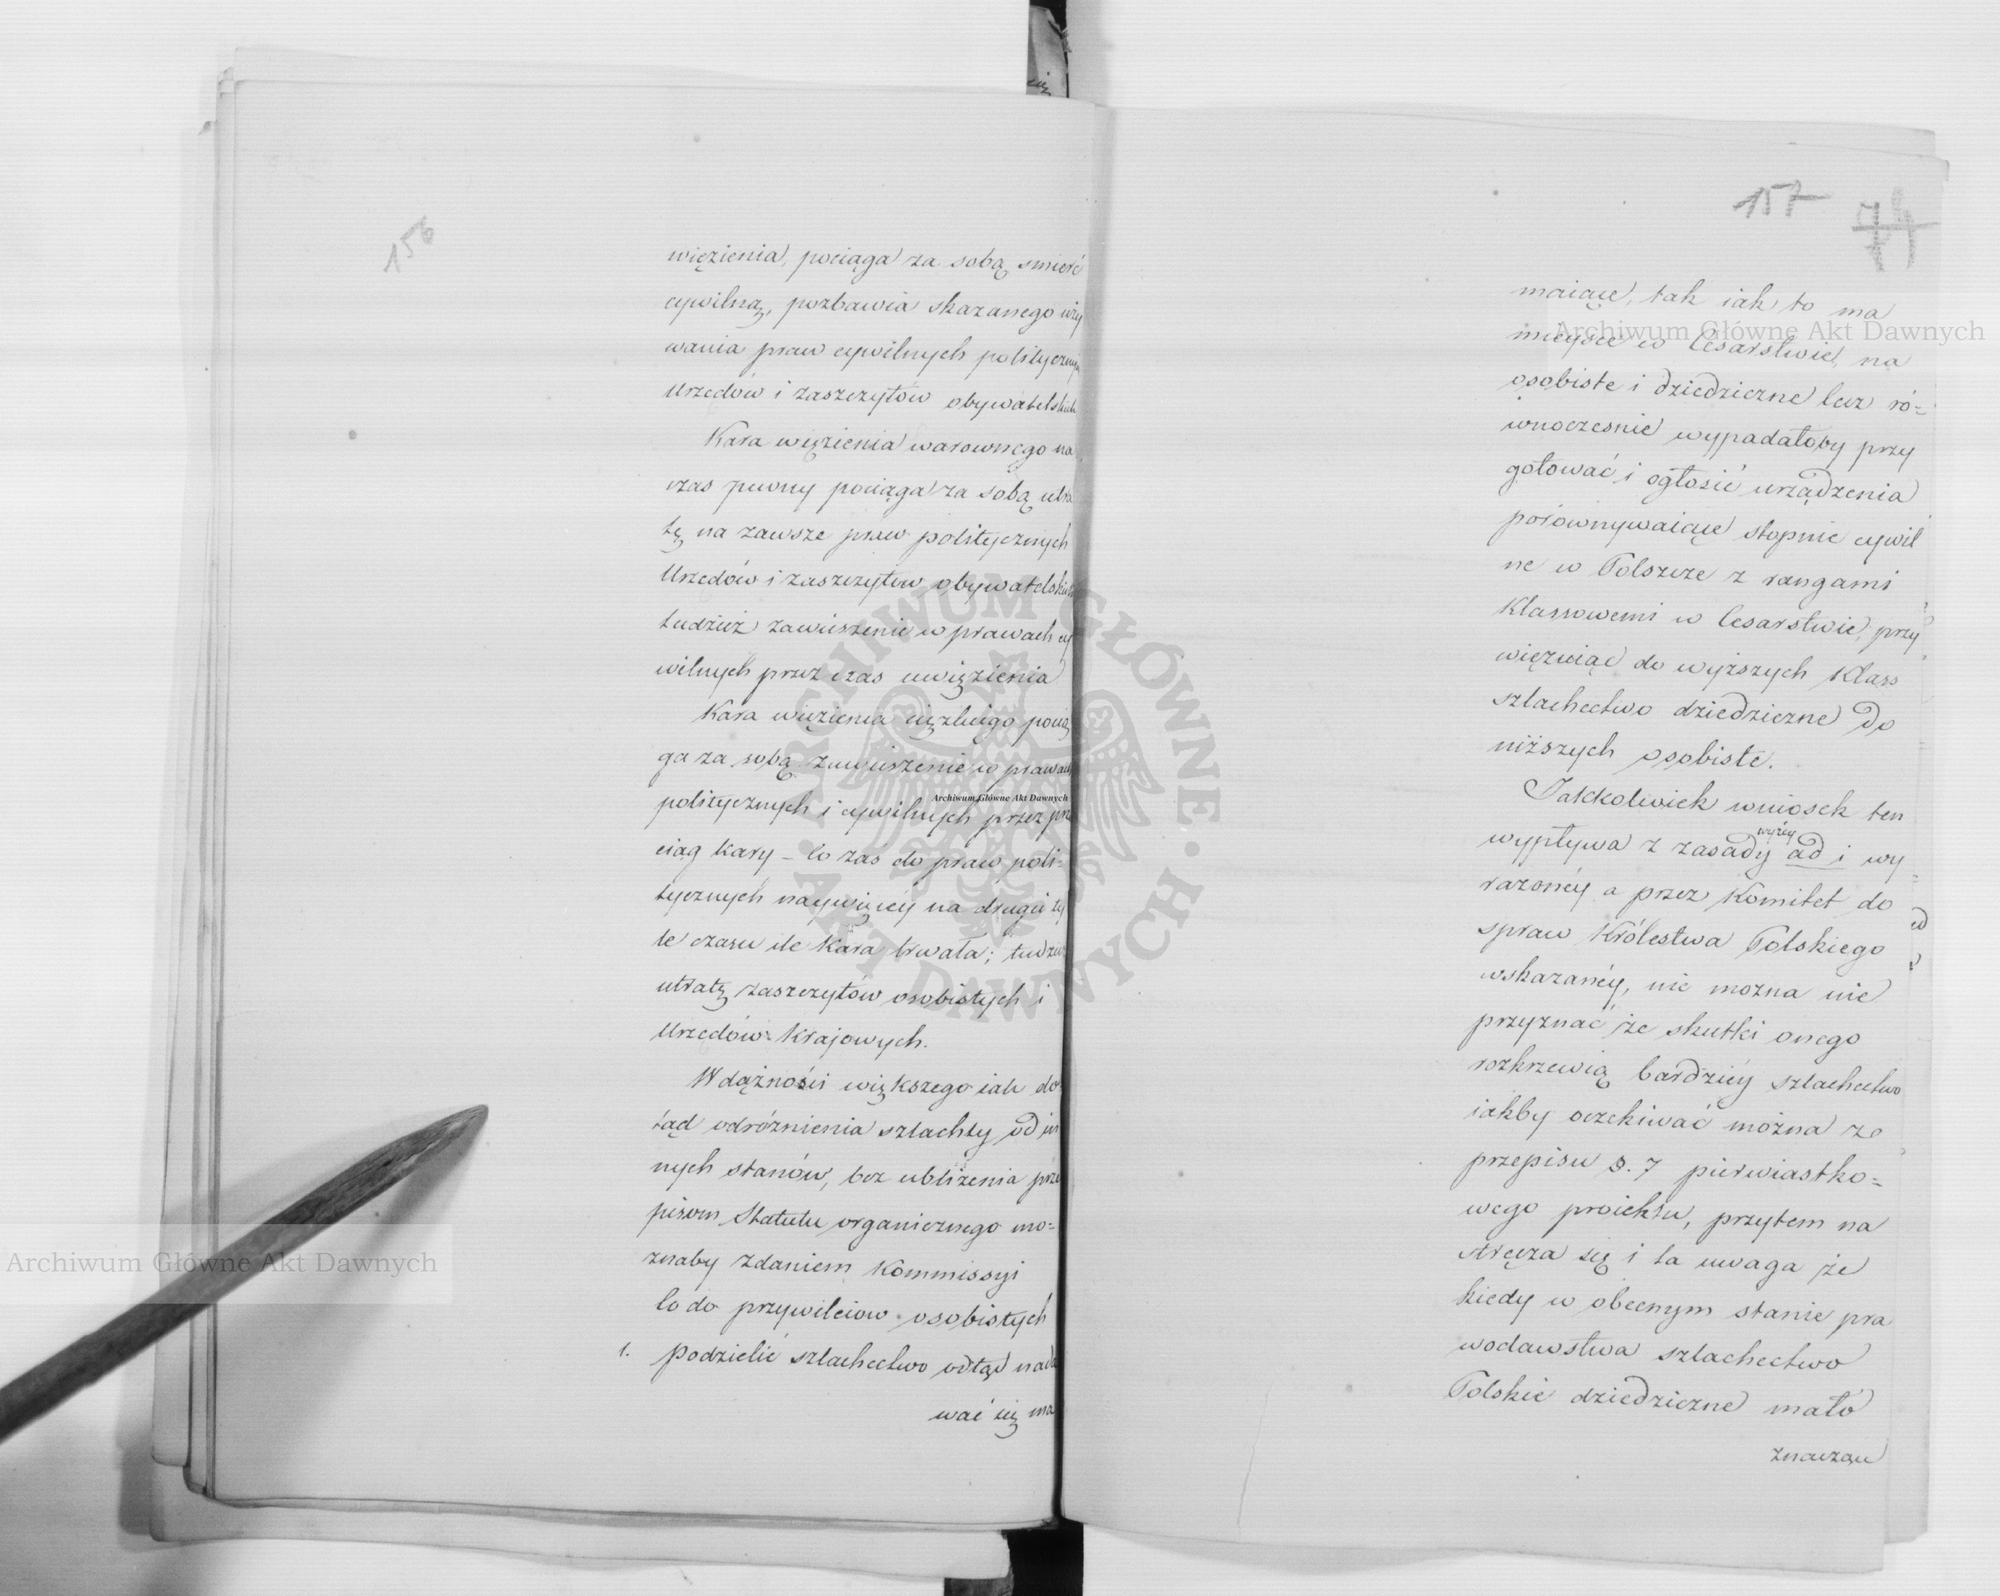 156
więzienia, pociąga za sobą smierć
cywilną, pozbawia skazanego uży
wania praw cywilnych politycznych
Urzędów i zaszczytów obywatelskich
Kara więzienia warownego na
czas pewny pociąga za sobą utra
tę na zawsze praw politycznych
Urzędów i zaszczytów obywatelskich
tudzież zawieszenie w prawach cy
wilnych przez czas uwięzienia
Kara więzienia ciężkiego pocią
ga za sobą zawieszenie w prawach
politycznych i cywilnych przez prze
ciąg kary – co zaś do praw poli=
tycznych naywięcéy na drugie ty
le czasu ile kara trwała; tudzież
utratę zaszczytów osobistych i
Urzędów Krajowych.
W dążności większego iak do
tąd odróżnienia szlachty od in
nych stanów, bez ubliżenia prze
pisom Statutu organicznego mo=
znaby zdaniem Kommissyi
co do przywileiow osobistych
1. podzielić szlachectwo odtąd nada
wać się ma
157
74
maiące, tak iak to ma
mieysce w Cesarstwie, na
osobiste i dziedziczne lecz ró=
wnocześnie wypadałoby przy
gotować i ogłosić urządzenia
porównywaiące stopnie cywil
ne w Polszcze z rangami
Klassowemi w Cesarstwie, przy
więzuiąc do wyższych Klass
szlachectwo dziedziczne do
niższych osobiste.
Jakkolwiek wniosek ten
wypływa z zasady wyżéy ad i wy
rażonéy a przez Komitet do
spraw Królestwa Polskiego
wskazanéy, nie można nie
przyznać że skutki onego
rozkrzewią bardziéy szlachectwo
iakby oczekiwać można ze
przepisu §. 7 pierwiastko=
wego proiektu, przytem na
stręcza się i ta uwaga że
kiedy w obecnym stanie pra
wodawstwa szlachectwo
Polskie dziedziczne mało
znaczące
Archiwum Główne Akt Dawnych
Archiwum Główne Akt Dawnych
Archiwum Główne Akt Dawnych
ARCHIWUM GŁÓWNE • AKT DAWNYCH •